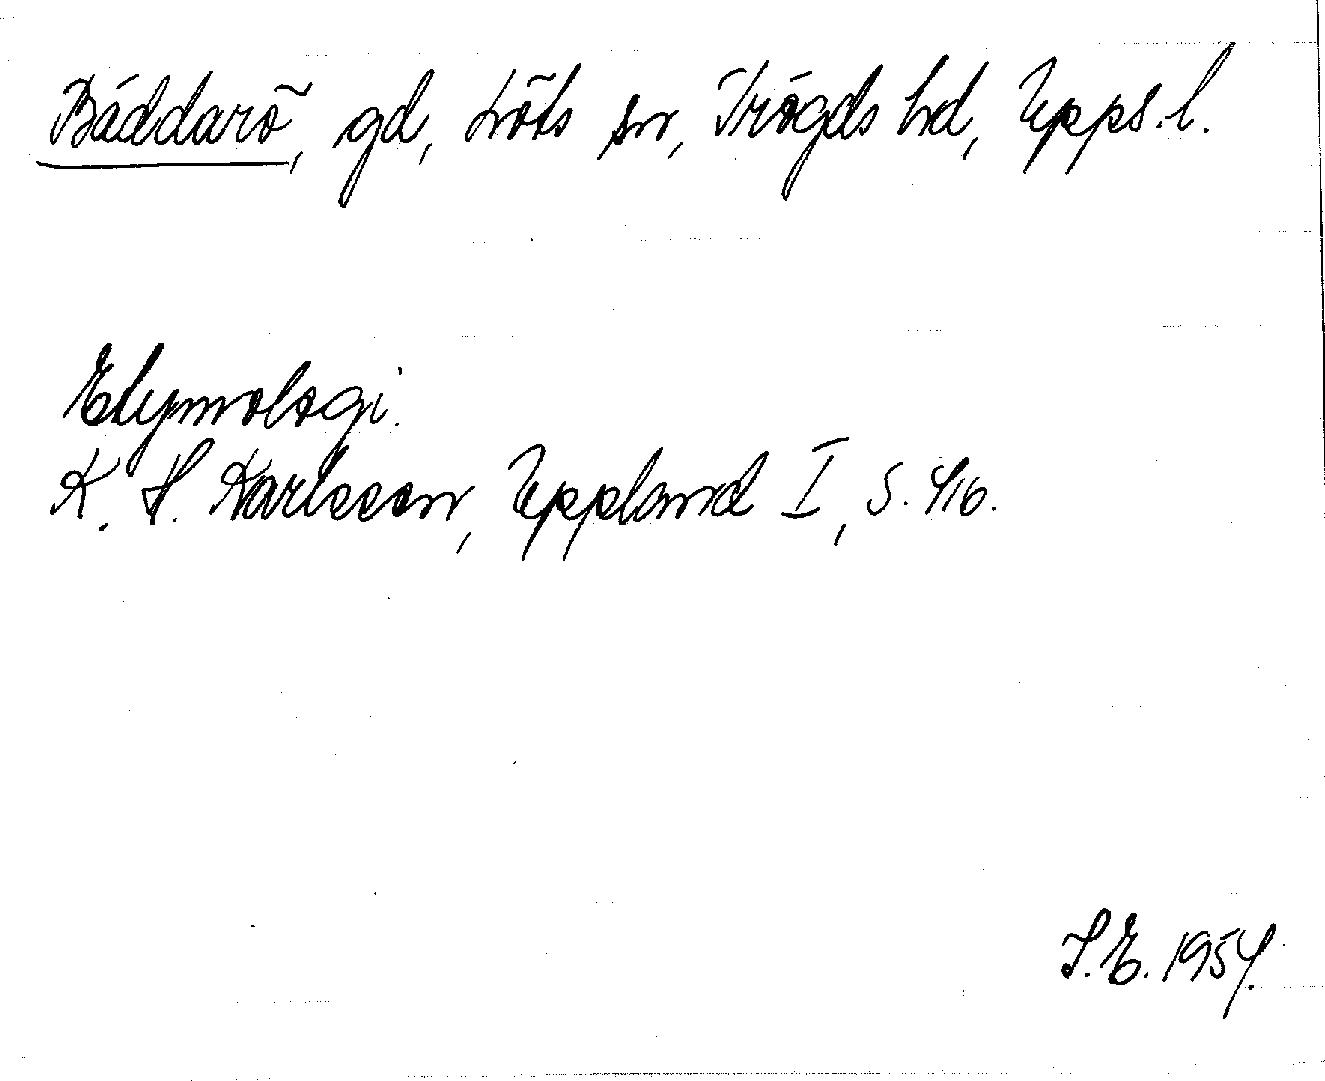 Bäddarö, gd, Löts sn, Trögds hd, Upps.l.
Etymologi.
K. H. Karlsson, Uppland I, s. 416.
S.E. 1954.